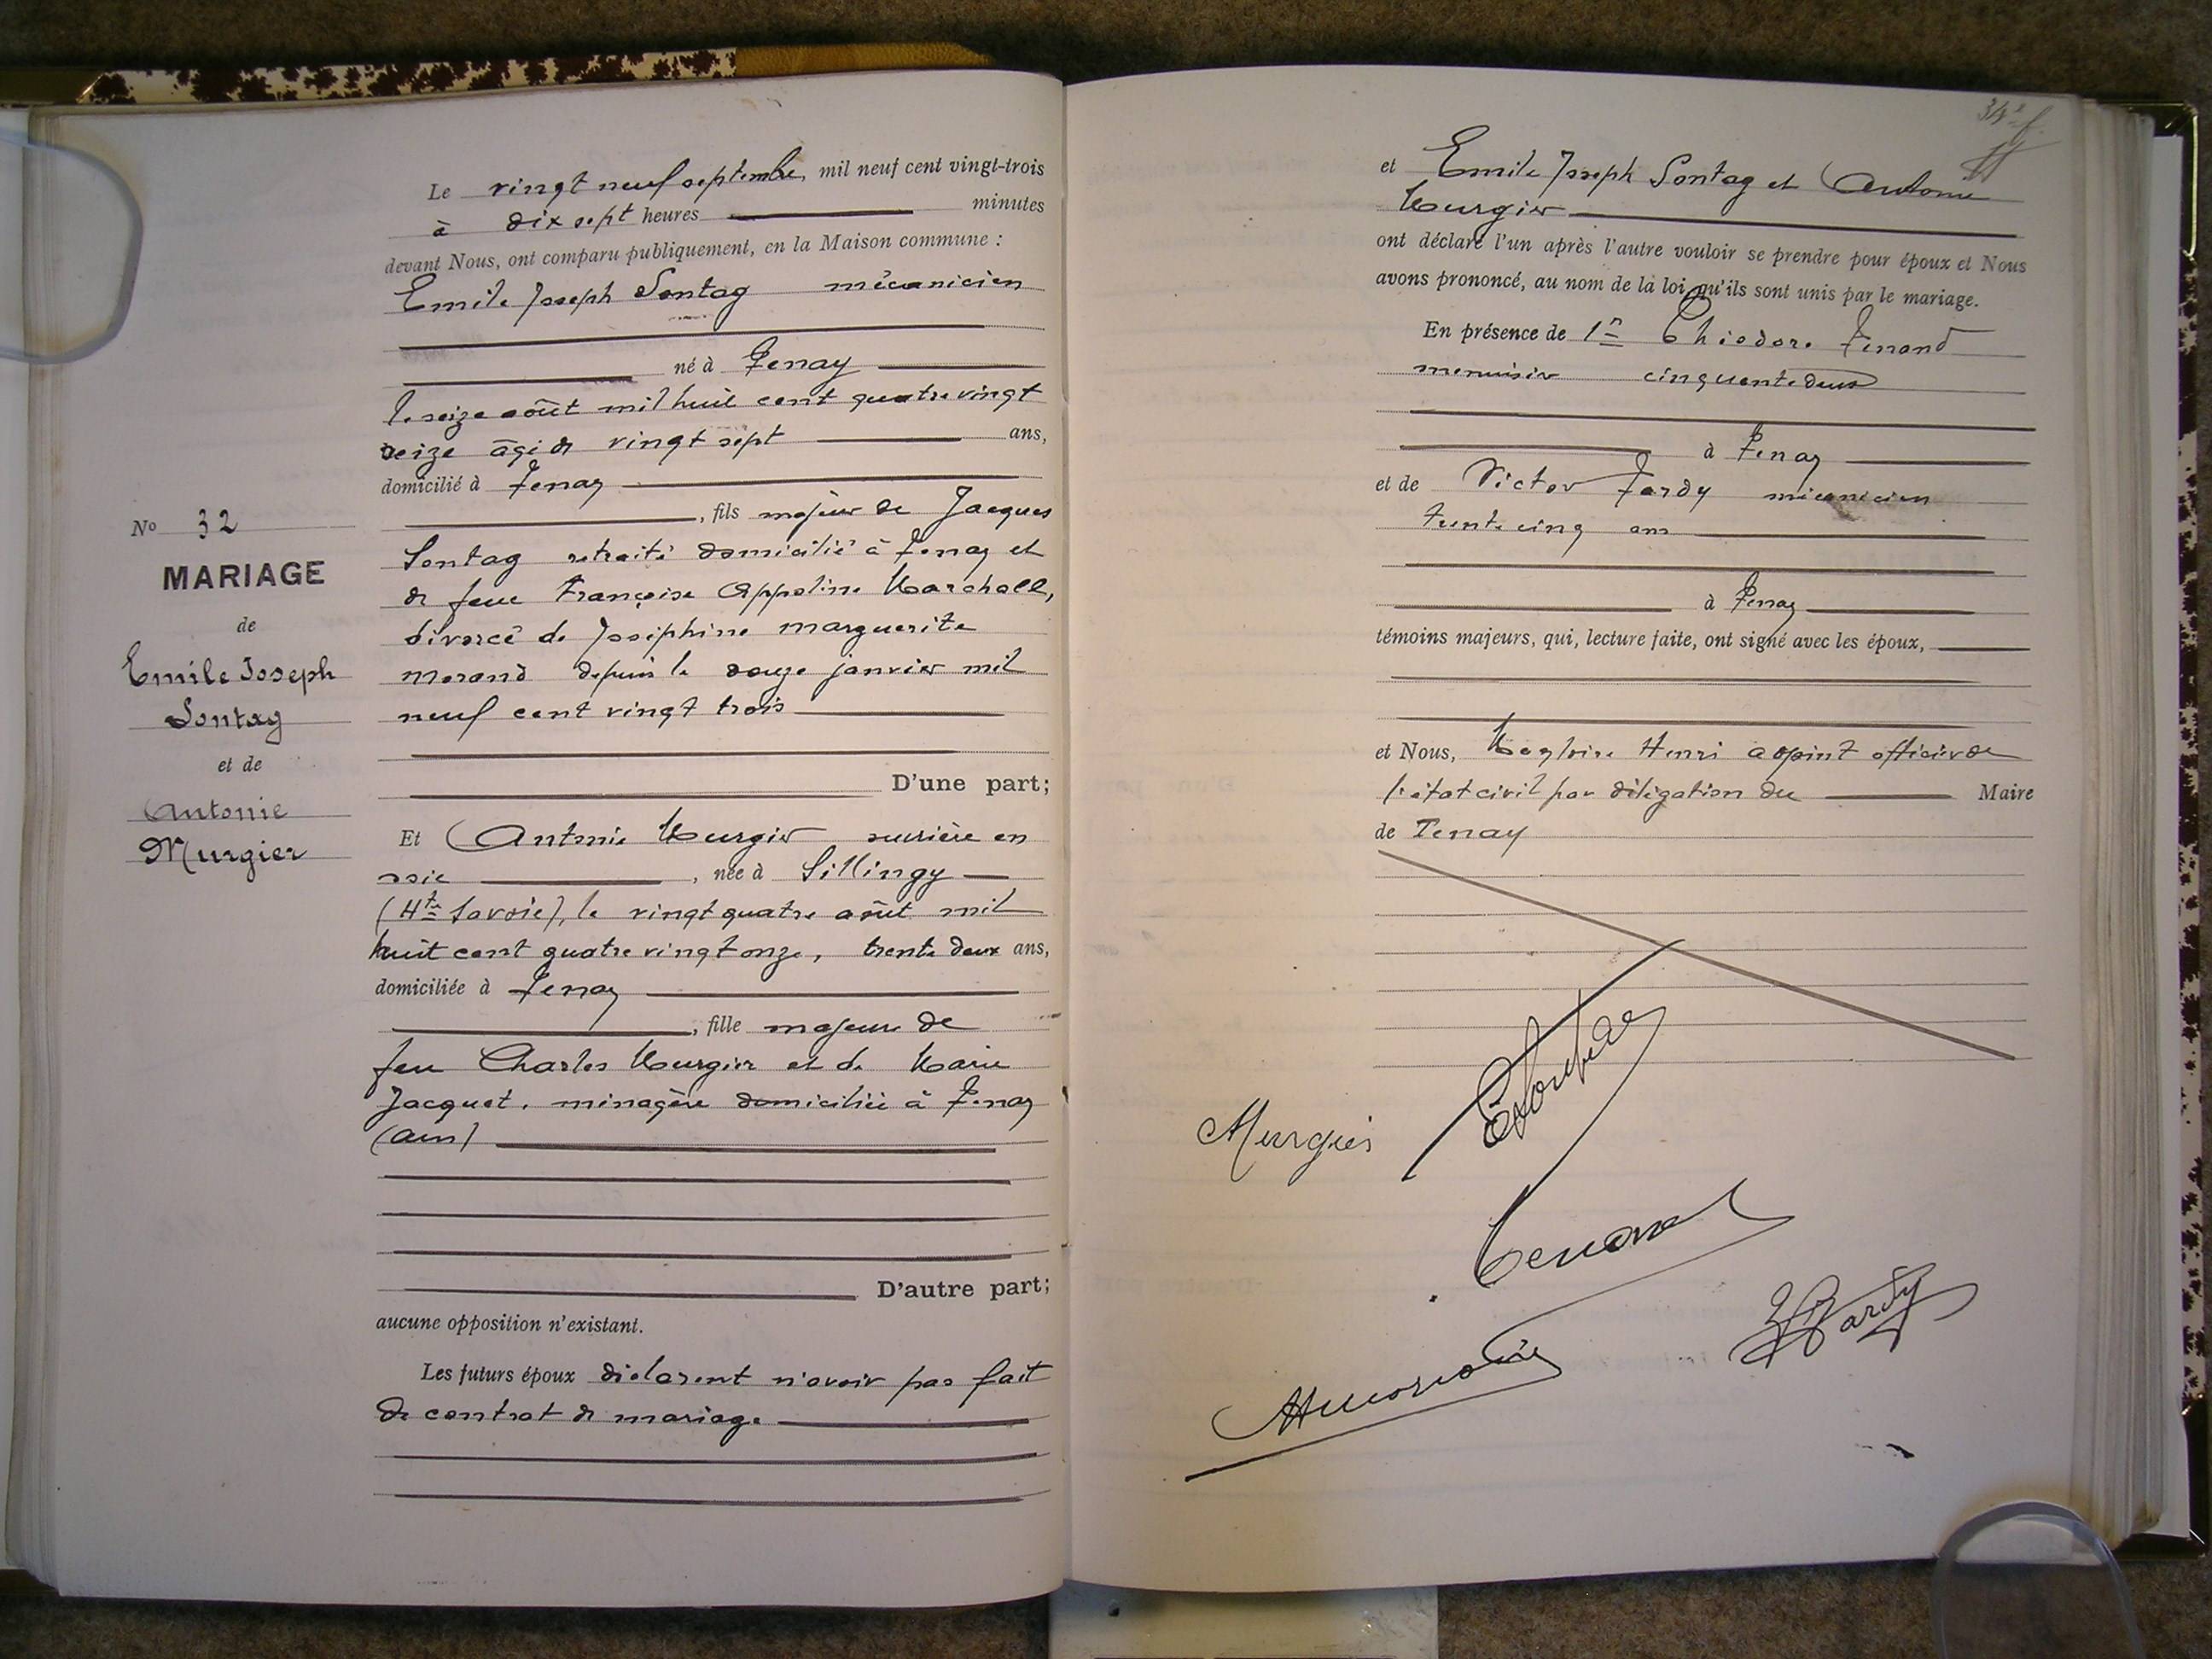 Le vingt neuf septembre, mil neuf cent vingt-trois
à dix sept heures minutes
devant Nous, ont comparu publiquement, en la Maison commune :
Emile Joseph Sontag mécanicien
né à Tenay
le seize août mil huit cent quatre vingt
seize âgé de vingt sept ans,
domicilié à Tenay
, fils majeur de Jacques
Sontag retraité domicilié à Tenay et
de feue Françoise Appoline Marchall,
divorcé de Joséphine Marguerite
Morand depuis le douze janvier mil
neuf cent vingt trois
D'une part;
Et Antonie Murgier ouvrière en
soie , née à Sillingy
(Hte Savoie), le vingt quatre août mil
huit cent quatre vingt onze, trente deux ans,
domiciliée à Tenay
, fille majeure de
feu Charles Murgier et de Marie
Jacquet, ménagère domiciliée à Tenay
(Ain)
D'autre part;
aucune opposition n'existant.
Les futurs époux déclarent n'avoir pas fait
de contrat de mariage
No 32
MARIAGE
de
Emile Joseph
Sontag
et de
Antonie
Murgier
et Emile Joseph Sontag et Antonie
Murgier
ont déclaré l'un après l'autre vouloir se prendre pour époux et Nous
avons prononcé, au nom de la loi, qu'ils sont unis par le mariage.
En présence de Théodore Tenand
menuisier cinquante deux
à Tenay
et de Victor Jardy mécanicien
trente cinq ans
à Tenay
témoins majeurs, qui, lecture faite, ont signé avec les époux,
et Nous, Henri adjoint officier de
l'état civil par délégation du Maire
de Tenay
Murgier
Tenand